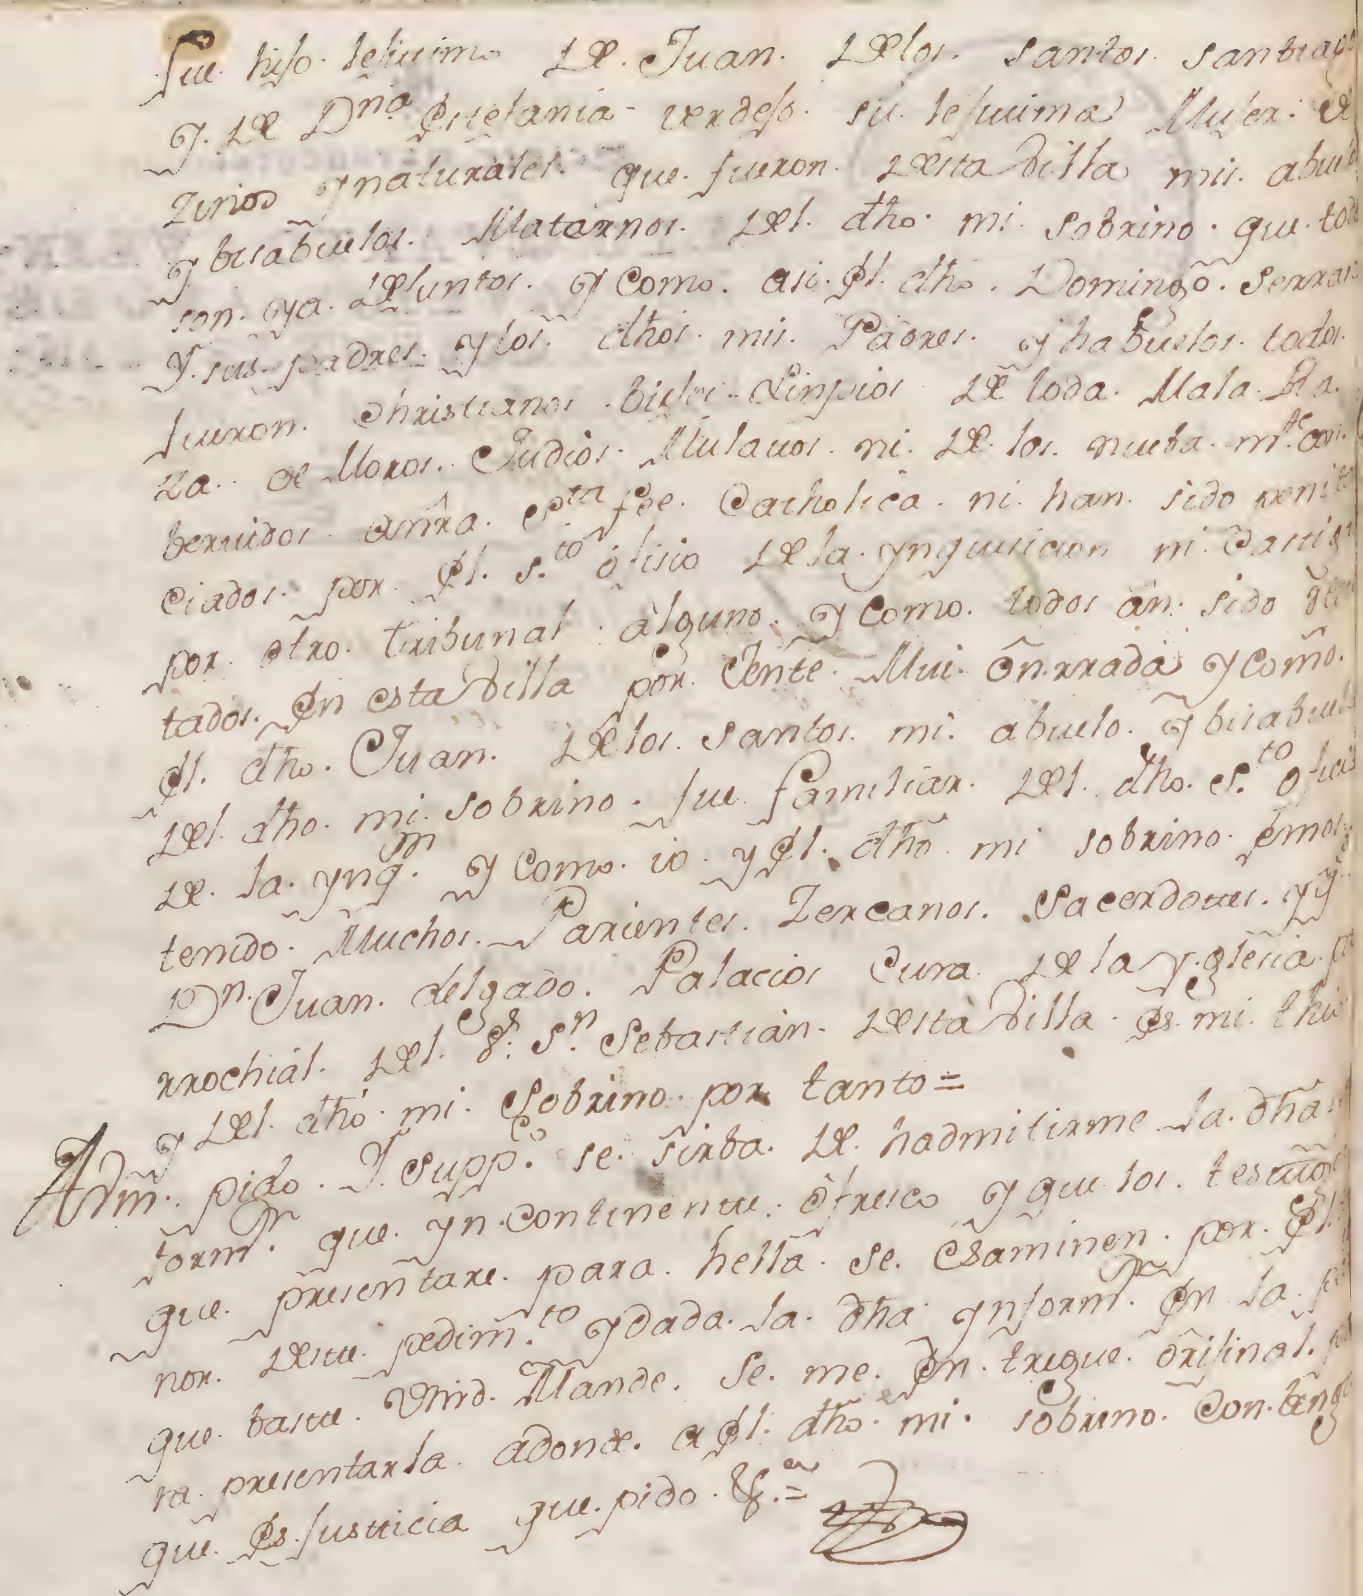 fue hijo lejitimo de Juan de los Santos Santiago
y de Dña Estefania verdejo su lejitima Mujer
Zinos y naturales que fueron desta Villa mis abuelos
y bisabuelos Maternos del dho mi sobrino que todos
son ya defuntos y como asi el dho Domingo Serrano
Y sus padres y los dhos mis Padres y habuelos todos
fueron Christianos biejos Linpios de toda Mala Ra
za de Moros Judios Mulatos ni de los nueba mte con
bertidos a nra sta fee Catholica ni han sido peniten
ciados por el s.to ofisio de la ynquisicion ni Castigados
por otro tribunal alguno y como todos an sido
tados en esta Villa por Jente Mui onrrada y como
el dho Juan de los santos mi abuelo y bisabuelo
del dho mi sobrino fue familiar del dho s.to ofisio
de la ynqn y como io y el dho mi sobrino emos
tenido Muchos Parientes Zercanos Sacerdotes y
Dn Juan delgado Palacios Cura de la yglesia pa
rrochial del Sr Sn Sebastian desta Villa es mi thio
y del dho mi Sobrino por tanto =
A Vm pido Y suppco se sirba de hadmitirme la dha
formn que yn continente ofresco y que los testigos
que presentare para hella se Esaminen por el
nor deste pedim.to y dada la dha ynformn en la
que baste Vmd Mande se me en tregue orijinal pa
ra presentarla adonde a el dho mi sobrino Con benga
que es justicia que pido &.a =